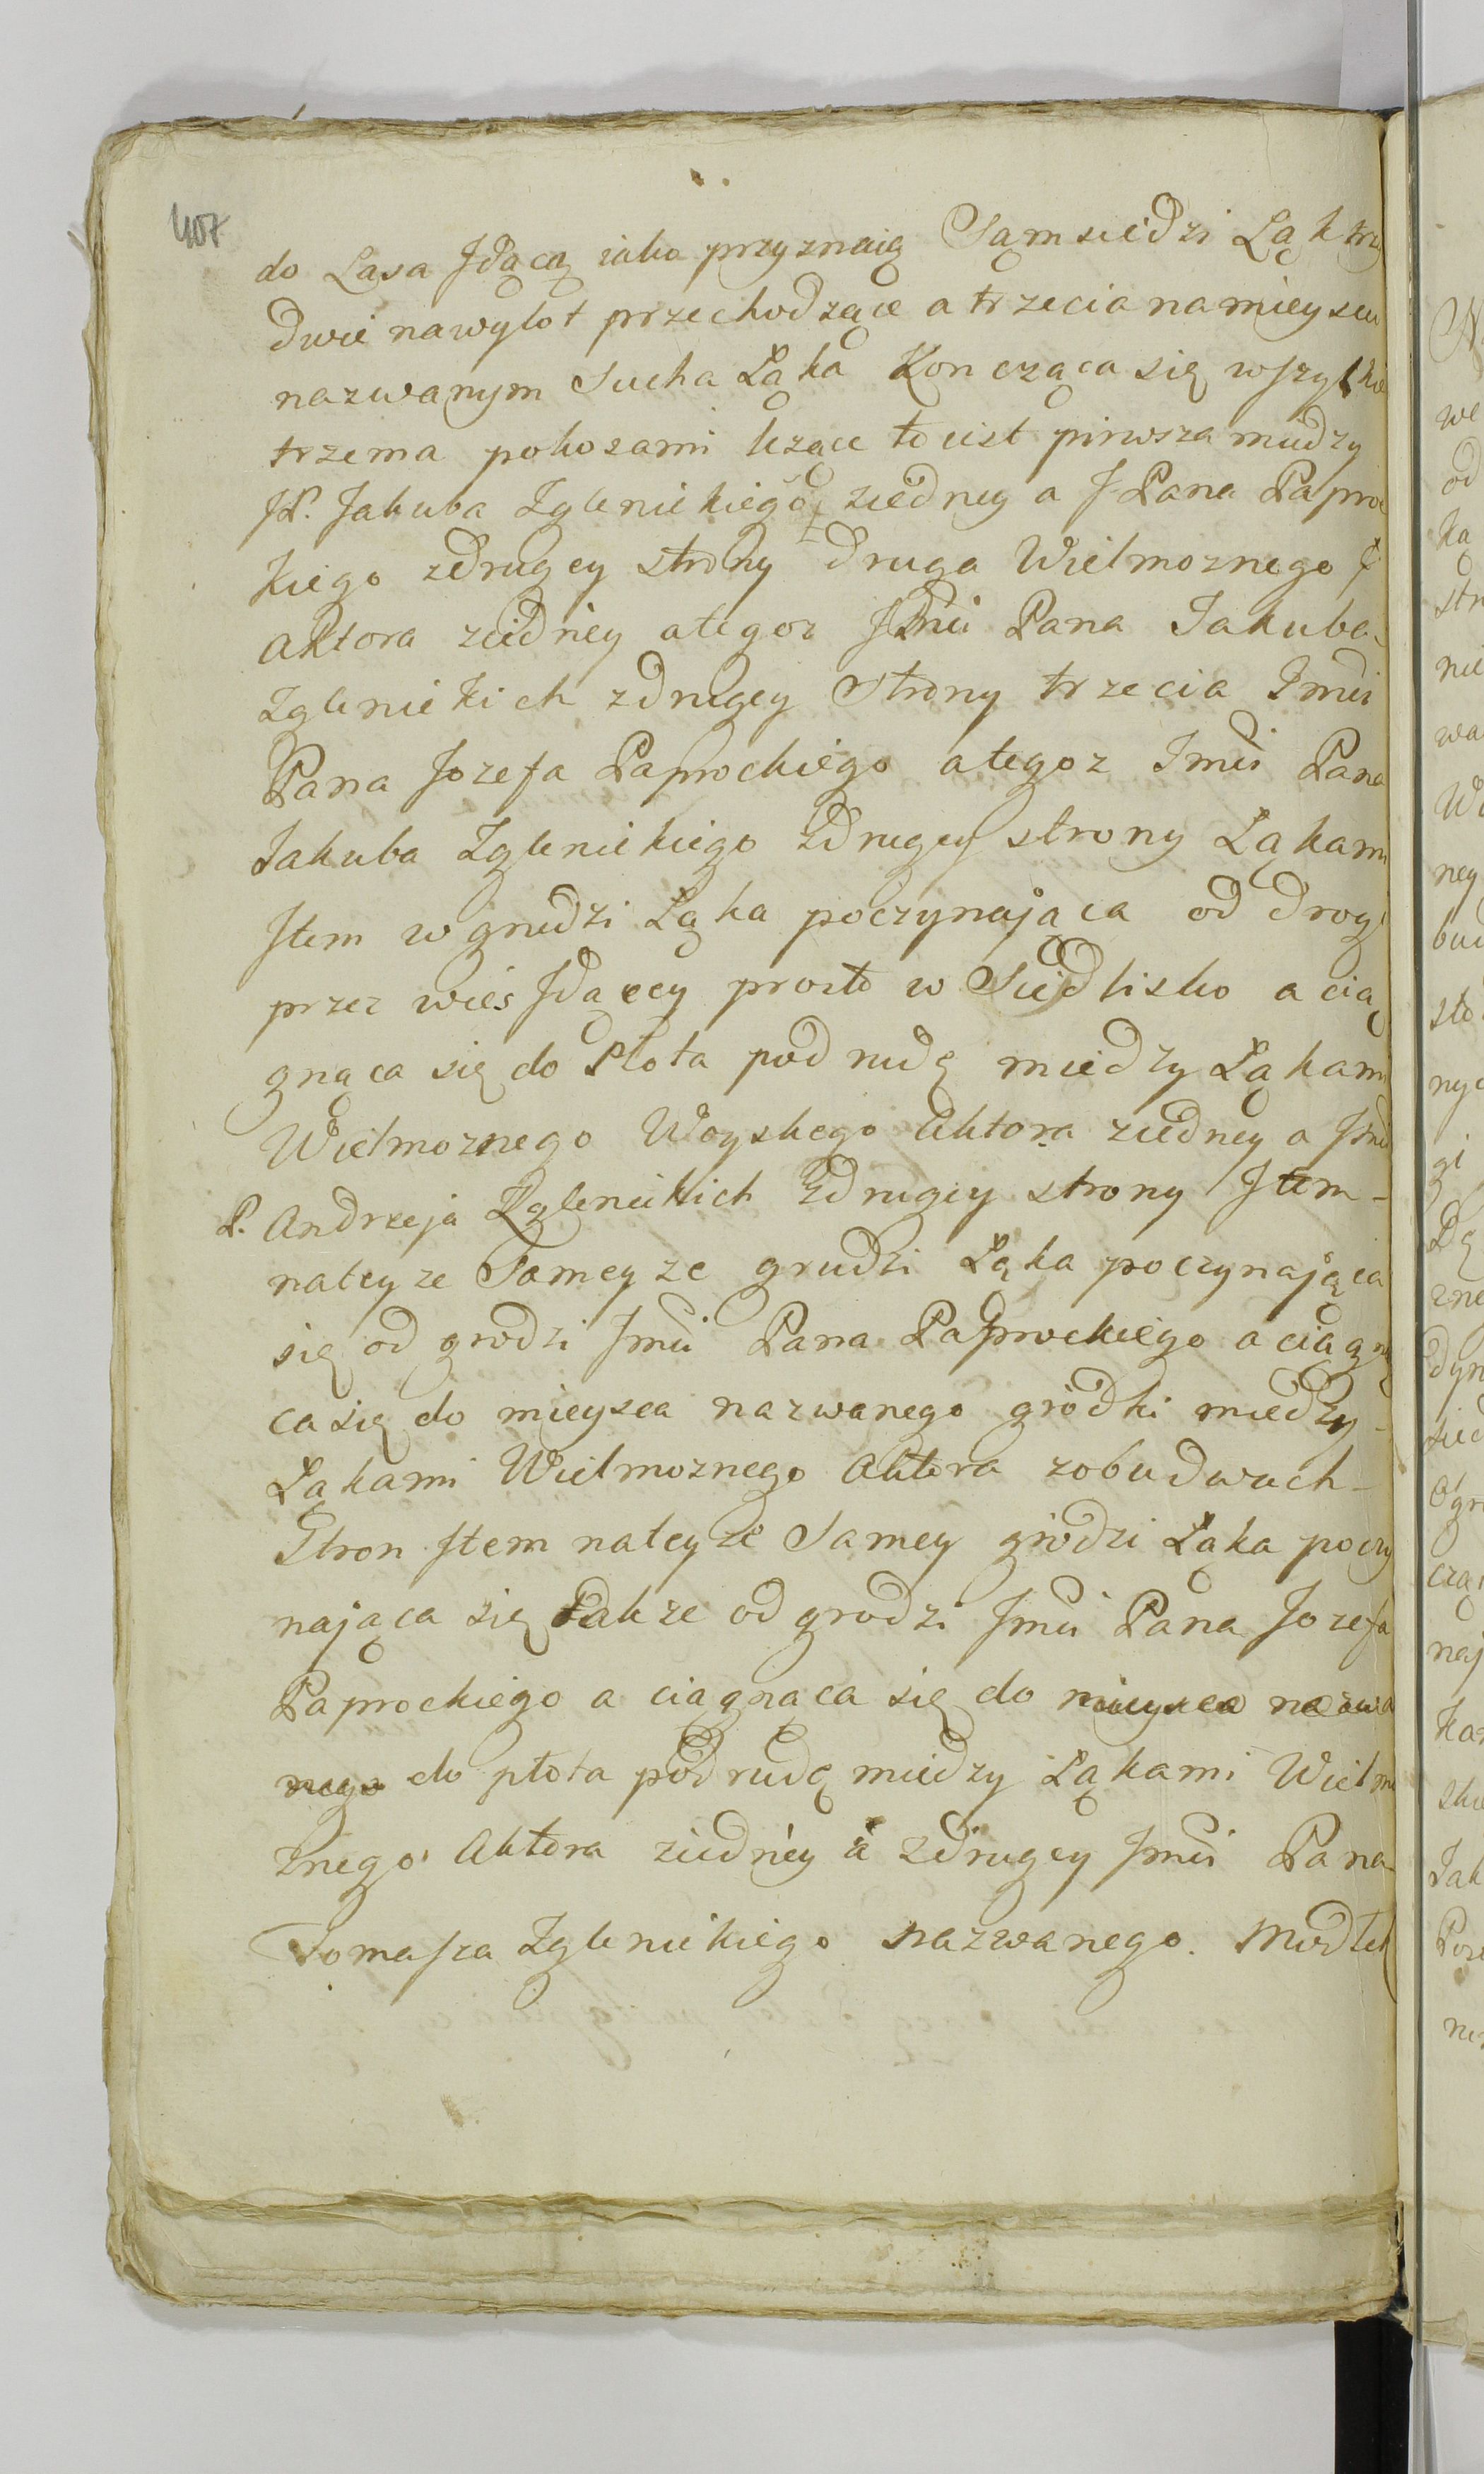 407
do Lasa Jdącą iako przyznaią Sąmsiedzi Ląk trzy
dwie nawylot przechodzące a trzecia namieyscu
nazwanym Sucha Ląka Kończąca się wszytkie
trzema pokosami lezące to iest pirwsza miedzy
JP. Jakuba Zglenickiego ziedney a J Pana Paproc
kiego zdrugey strony druga Wielmoznego
Aktora ziedney ategoz Jmci Pana Jakuba
Zglenickich zdrugey Strony trzecia Jmci
Pana Jozefa Paprockiego ategoz Jmci Pana
Jakuba Zglenickiego zdrugey strony Ląkami
Jtem w grudzi Ląka poczynająca od drogi
przez wies Jdącey prosto w Siedlisko a cią
gnąca się do Plota pod rudę miedzy Ląkami
Wielmoznego Woyskego Aktora ziedney a Jmci
P. Andrzeja Zglenickich zdrugey strony Jtem
nateyze Sameyze grudzi Ląka poczynająca
się od grodzi Jmci Pana Paprockiego a ciągną
ca się do mieysca nazwanego grodki miedzy
Ląkami Wielmoznego Aktora zobudwuch
Stron Jtem nateyze Samey grodzi Ląka poczy
nająca się takze od grodzi Jmci Pana Jozefa
Paprockiego a ciągnąca się do mieysca nazwa
nego do plota pod rudę miedzy Ląkami Wielmo
znego Aktora ziedney a zdrugey Jmci Pana
Tomasza Zglenickiego nazwanego. Modlek